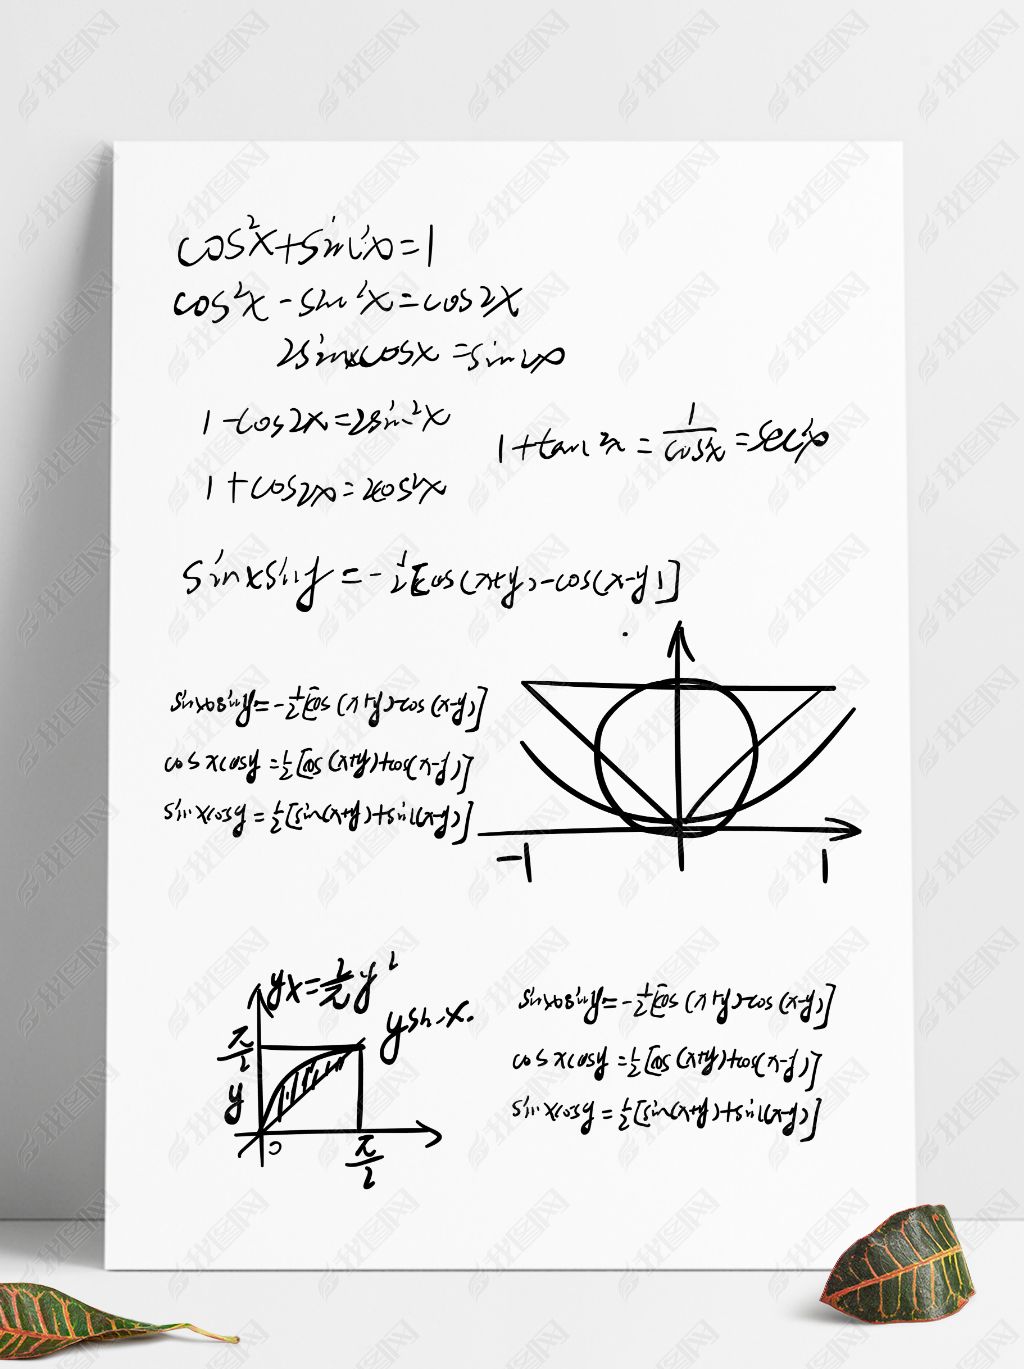 cos²x+sin²x=1
cos²x-sin²x=cos2x
2sinxcosx=sin2x
1-cos2x=2sin²x
1+tan²x=1/cos²x=sec²x
1+cos2x=2cos²x
sinxsiny=-1/2[cos(x+y)-cos(x-y)]
sinxsiny=-1/2[cos(x+y)-cos(x-y)]
cosxcosy=1/2[cos(x+y)+cos(x-y)]
sinxcosy=1/2[sin(x+y)+sin(x-y)]
-1 1
yx=2/π y²
y sin x.
π/2
y
0
π/2
sinxsiny=-1/2[cos(x+y)-cos(x-y)]
cosxcosy=1/2[cos(x+y)+cos(x-y)]
sinxcosy=1/2[sin(x+y)+sin(x-y)]
我图网